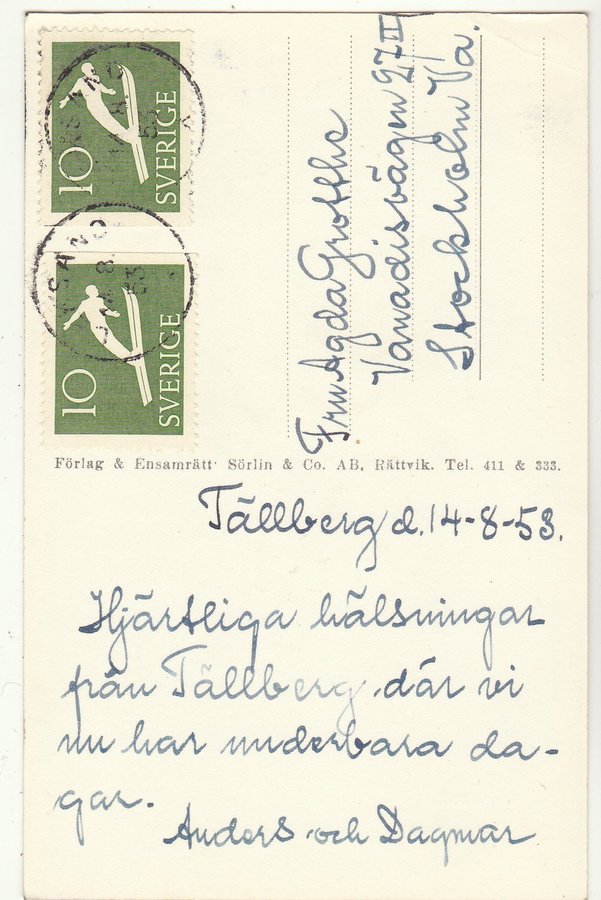 10
SVERIGE
10
SVERIGE
Fru Agda Grotthe
Vanadisvägen 27 II
Stockholm Va.
Förlag & Ensamrätt Sörlin & Co. AB, Rättvik. Tel. 411 & 333.
Tällberg d. 14-8-53.
Hjärtliga hälsningar
från Tällberg där vi
nu har underbara da-
gar.
Anders och Dagmar